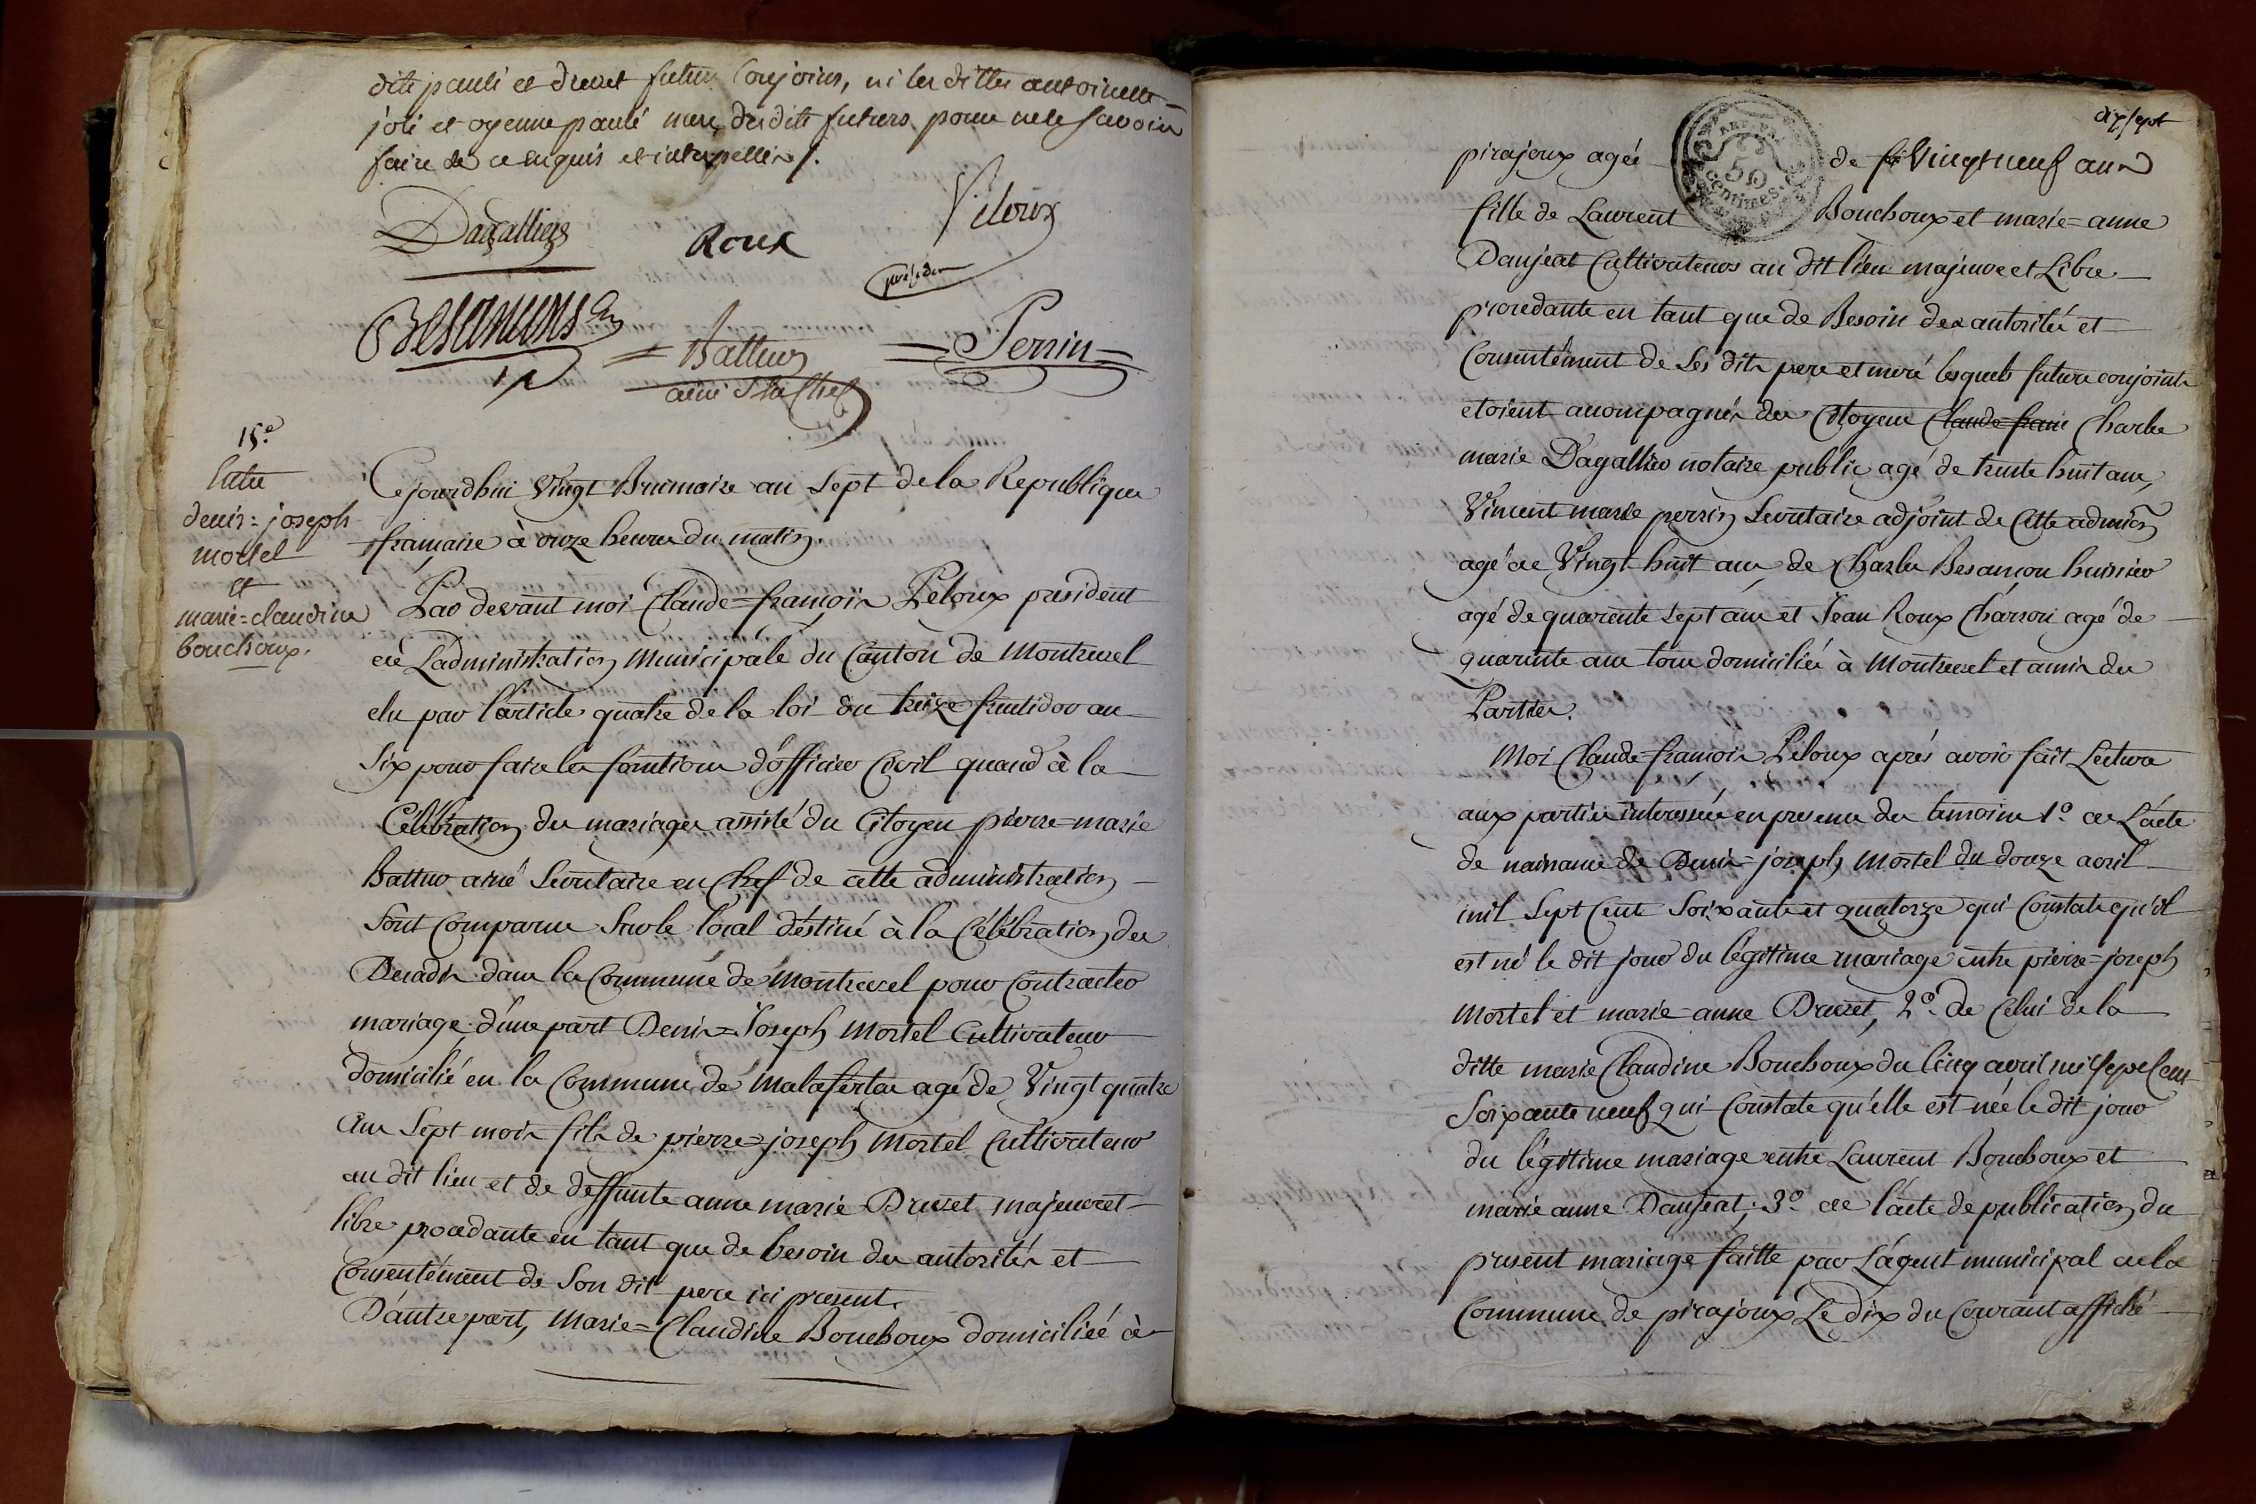 dits pauli et druet futurs Conjoins, ni les dittes antoinette
joli et oyenne pauli mere desdits futurs pour ne le savoir
faire de ce enquis et interpellés /.
Dagallier
Roux
Peloux
président
Besançons
Batteur
ainé S.re en Chef
Perrin
15.e
Entre
denis=joseph
mortel
et
marie=claudine
bouchoux.
Cejourdhui Vingt Brumaire an Sept de la Republique
française à onze heures du matin.
Par devant moi Claude=françois Peloux president
de Ladministration Municipale du Canton de Montrevel
elu par l'article quatre de la loi du treize fructidor an
Six pour faire les fonctions d'officier Civil quand à la
Célébration des mariages assisté du Citoyen pierre=marie
Batteur ainé Secretaire en Chef de cette administration
Sont Comparus Sur le local déstiné à la Célébration des
Decadis dans la Commune de Montrevel pour Contracter
mariage d'une part Denis=Joseph Mortel Cultivateur
domicilié en la Commune de malafretaz agé de Vingt quatre
ans Sept mois fils de pierre=joseph Mortel Cultivateur
au dit lieu et de deffunte anne marie Druet majeur et
libre procedante en tant que de besoin des autorités et
Consentément de Son dit pere ici present.
D'autre part, Marie=Claudine Bouchoux domiciliée à
dix sept
50
centimes.
pirajoux agée de Vingt neuf ans
fille de Laurent Bouchoux et marie=anne
Danjeat Cultivateurs au dit lieu majeure et Libre
procedante en tant que de Besoin des autorités et
Consentément de Ses dits pere et mere lesquels futurs conjoints
etoient accompagnés des Citoyens Claude franc Charles
marie Dagallier notaire public agé de trente huit ans,
Vincent marie perrin Secretaire adjoint de Cette admin.on
agé de Vingt huit ans de Charles Besançon huissier
agé de quarente Sept ans et Jean Roux Charron agé de
quarente ans tous domiciliés à Montrevel et amis des
Parties.
Moi Claude=françois Peloux aprés avoir fait Lecture
aux parties interessées en presence des temoins 1.o de L'acte
de naissance de Denis=joseph Mortel du douze avril
mil Sept Cent Soixante et quatorze qui Constate qu'il
est né le dit jour du légitime mariage entre pierre=joseph
Mortel et marie=anne Druet, 2.o de Celui de la
ditte marie Claudine Bouchoux du Cinq avril mil Sept Cent
Soixante neuf qui Constate qu'elle est née le dit jour
du légitime mariage entre Laurent Bouchoux et
marie anne Danjeat; 3.o de l'acte de publication du
present mariage faitte par L'agent municipal de la
Commune de pirajoux Le dix du Courant affiché